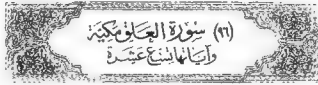 (٩٦) سُورَةُ العَلَقِ مَكيَّة
وَآيَاتُهَا تِسْعَ عَشْرَة